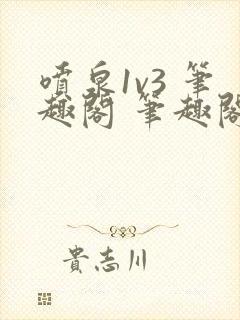 噴泉1v3 筆
趣閣 筆趣閣
貴志川